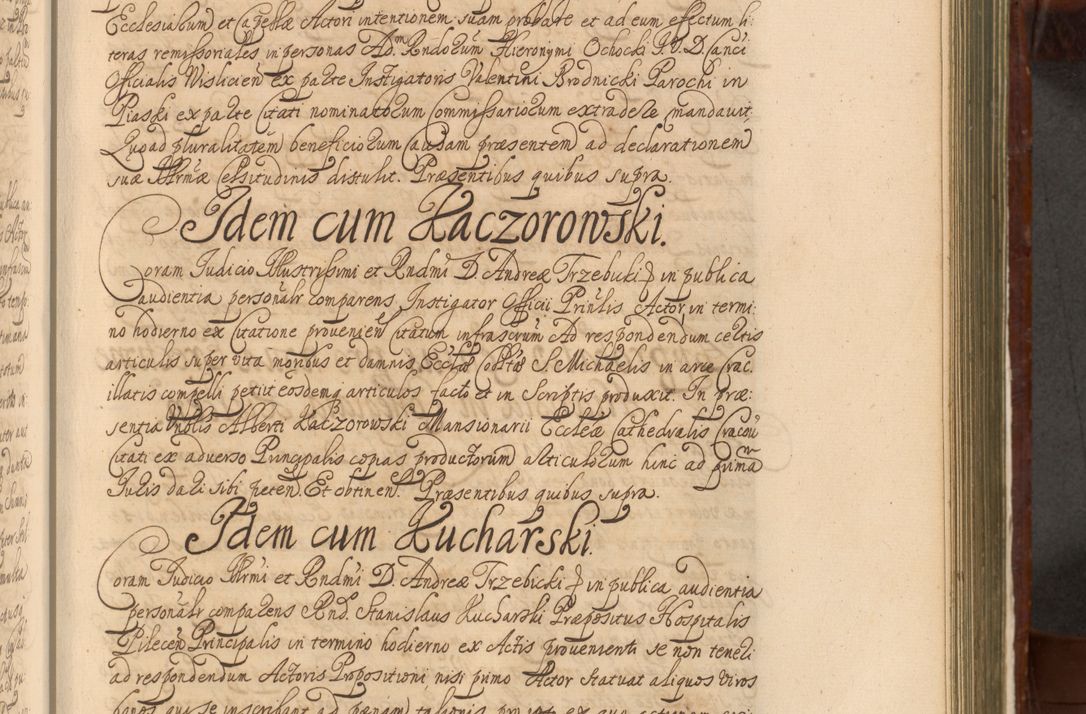 Ecclesiarum et Capellæ Actori intentionem suam probare et ad eum effectum li:
teras remissoriales in personas Adm Rndorum Hieronymi Ochocki I.V.D. Canci
Officialis Wislicien ex parte Instigatoris Valentini Brodnicki Parochi in
Piaski ex parte Citati nominatorum Commissariorum extradere mandavit,
Quoad pluralitatem beneficiorum Causam præsentem ad declarationem
suæ Illrmæ Celsitudinis distulit. Præsentibus quibus supra.
Idem cum Kaczorowski.
Coram Judicio Illustrissimi et Rndmi D. Andreæ Trzebicki in publica
audientia personalr comparens Instigator Officii Prinlis Actor in termi:
no hodierno ex Citatione provenien Citatum infrascrum Ad respondendum certis
articulis super vita moribus et damnis Ecclæ Colltæ S. Michaelis in arce Crac.
illatis compelli petiit eosdemq articulos facto et in Scriptis produxit. In præ:
sentia Vnblis Alberti Kaczorowski Mansionarii Eccleæ Cathedralis Cracou
Citati ex adverso Principalis copias productorum articulorum hinc ad primam
Juris dari sibi peten. Et obtinen. Præsentibus quibus supra.
Idem cum Kucharski.
Coram Judicio Illrmi et Rndmi D. Andreæ Trzebicki in publica audientia
personalr comparens Rnd. Stanislaus Kucharski Præpositus Hospitalis
Pilecen Principalis in termino hodierno ex Actis provenienti se non teneri
ad respondendum Actoris Propositioni, nisi primo Actor statuat aliquos viros
bonos qui se inscribant ad pænam talionis